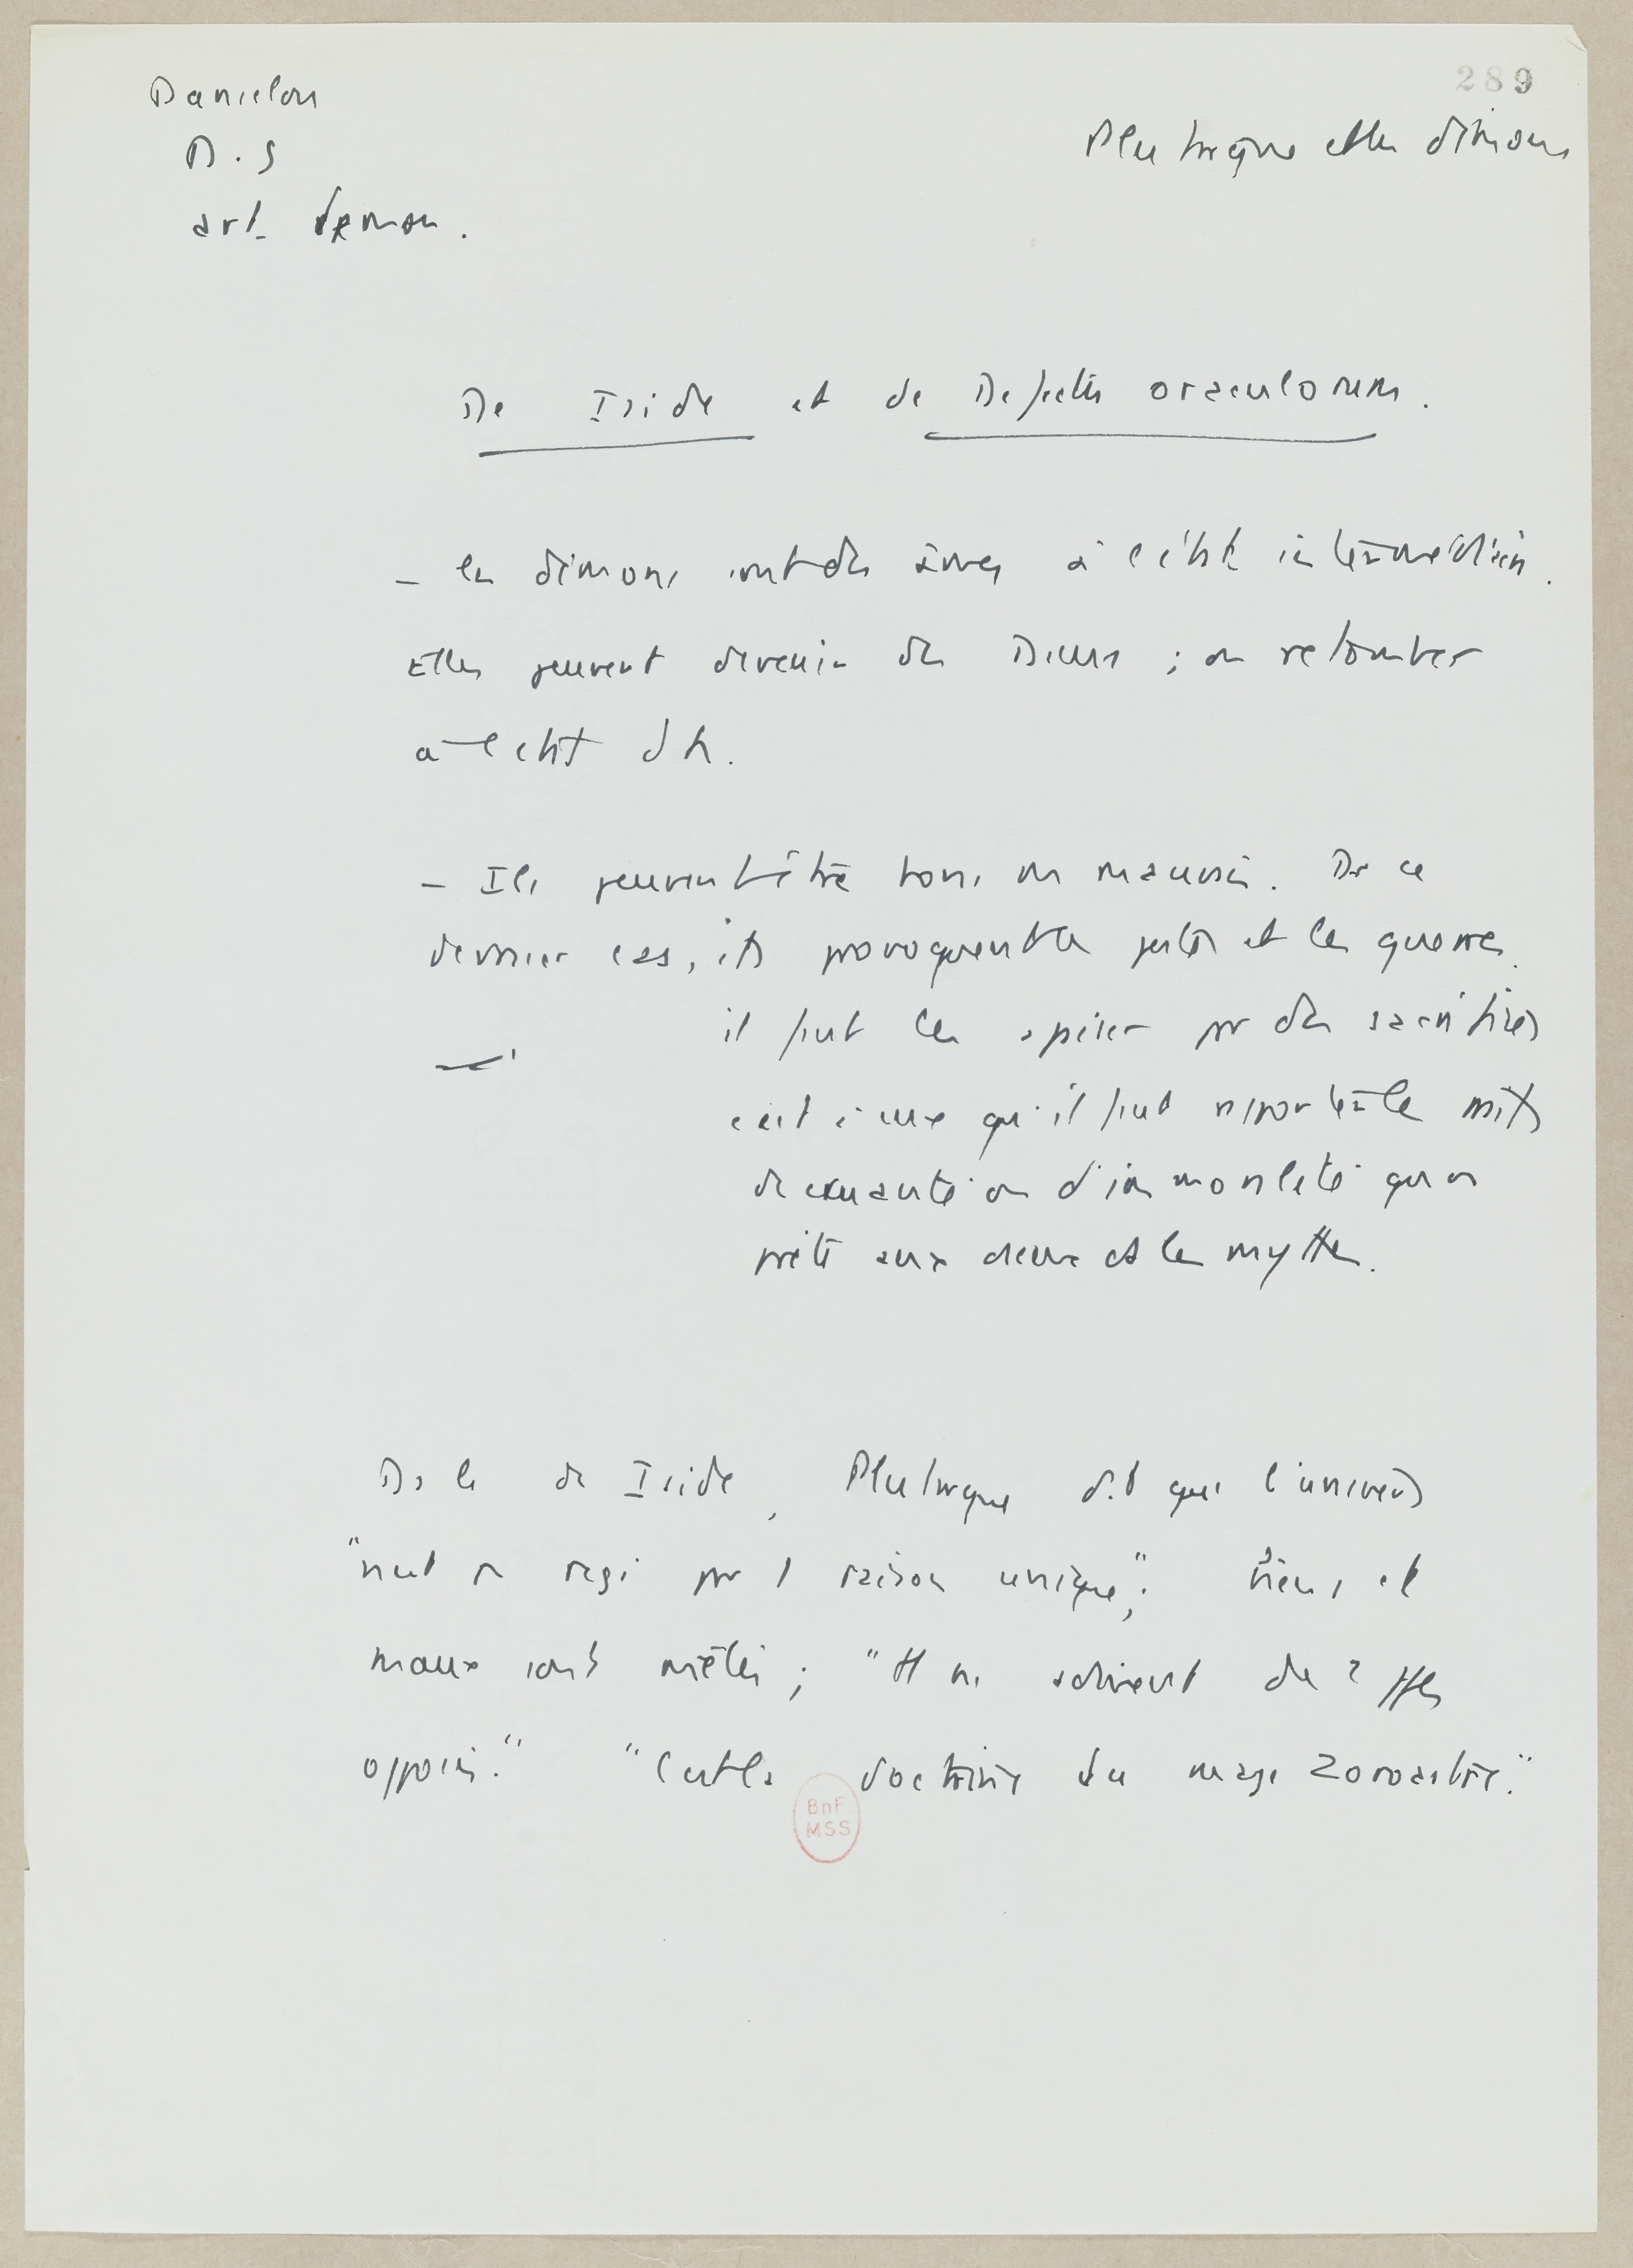 289
Danielou
D.S
art. demon.
Plutarque et les démons
De Iside et de Defectu oraculorum.
- les démons sont des âmes à l'état intermédiaire.
Elles peuvent devenir des Dieux ; ou retomber
à l'état d'h.
- Ils peuvent être bons ou mauvais. Ds ce
dernier cas, ils provoquent les pestes et les guerres.
il faut les apaiser par des sacrifices
c'est à eux qu'il faut reporter les
de cruauté ou d'immoralité qu'on
prête aux dieux et les mythes.
Ds le de Iside, Plutarque dit que l'univers
"n'est pas régi par 1 raison unique"; biens et
maux sont mêlés ; " ns de 2
opposés." "C'est la doctrine du mage Zoroastre."
BnF
MSS